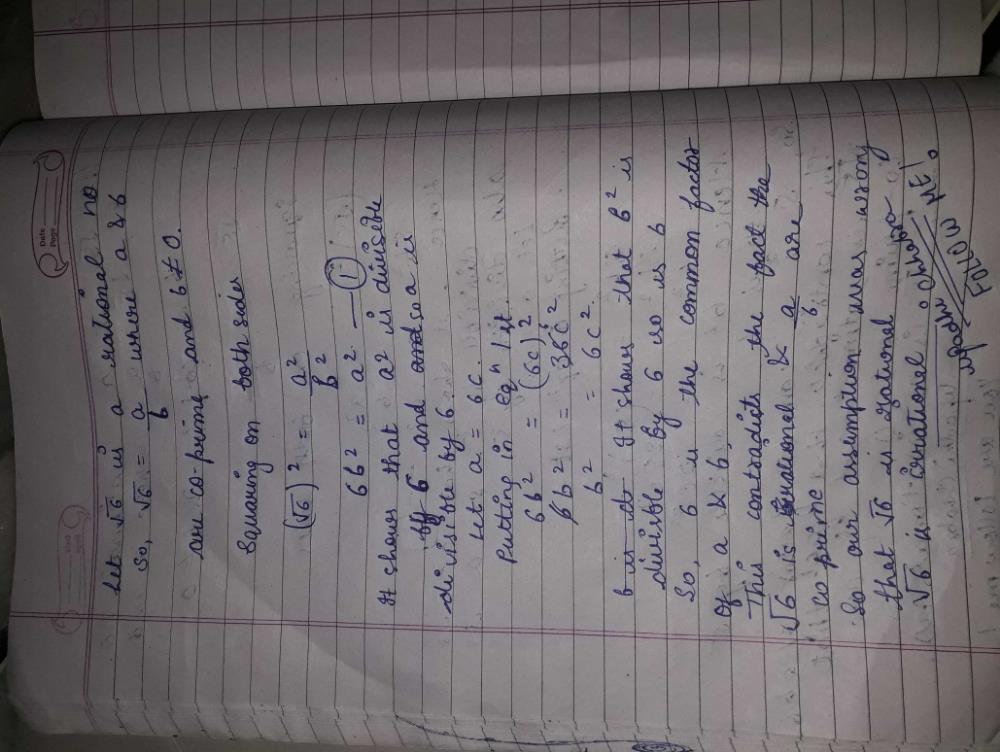 Date
Page
Let √6 is a rational no.
So, √6 = a/b where a & b
are co-prime and b ≠ 0.
Squaring on both sides
(√6)² = a²/b²
6b² = a² — ①
It shows that a² is divisible
by 6 and so a is
divisible by 6.
Let a = 6c.
Putting in eqⁿ 1st.
6b² = (6c)²
6b² = 36c²
b² = 6c²
It shows that b² is
divisible by 6 so is b
So, 6 is the common factor
of a & b.
This contradicts the fact the
√6 is rational & a/b are
co prime
So our assumption was wrong
that √6 is rational
√6 is irrational
FOLLOW ME!